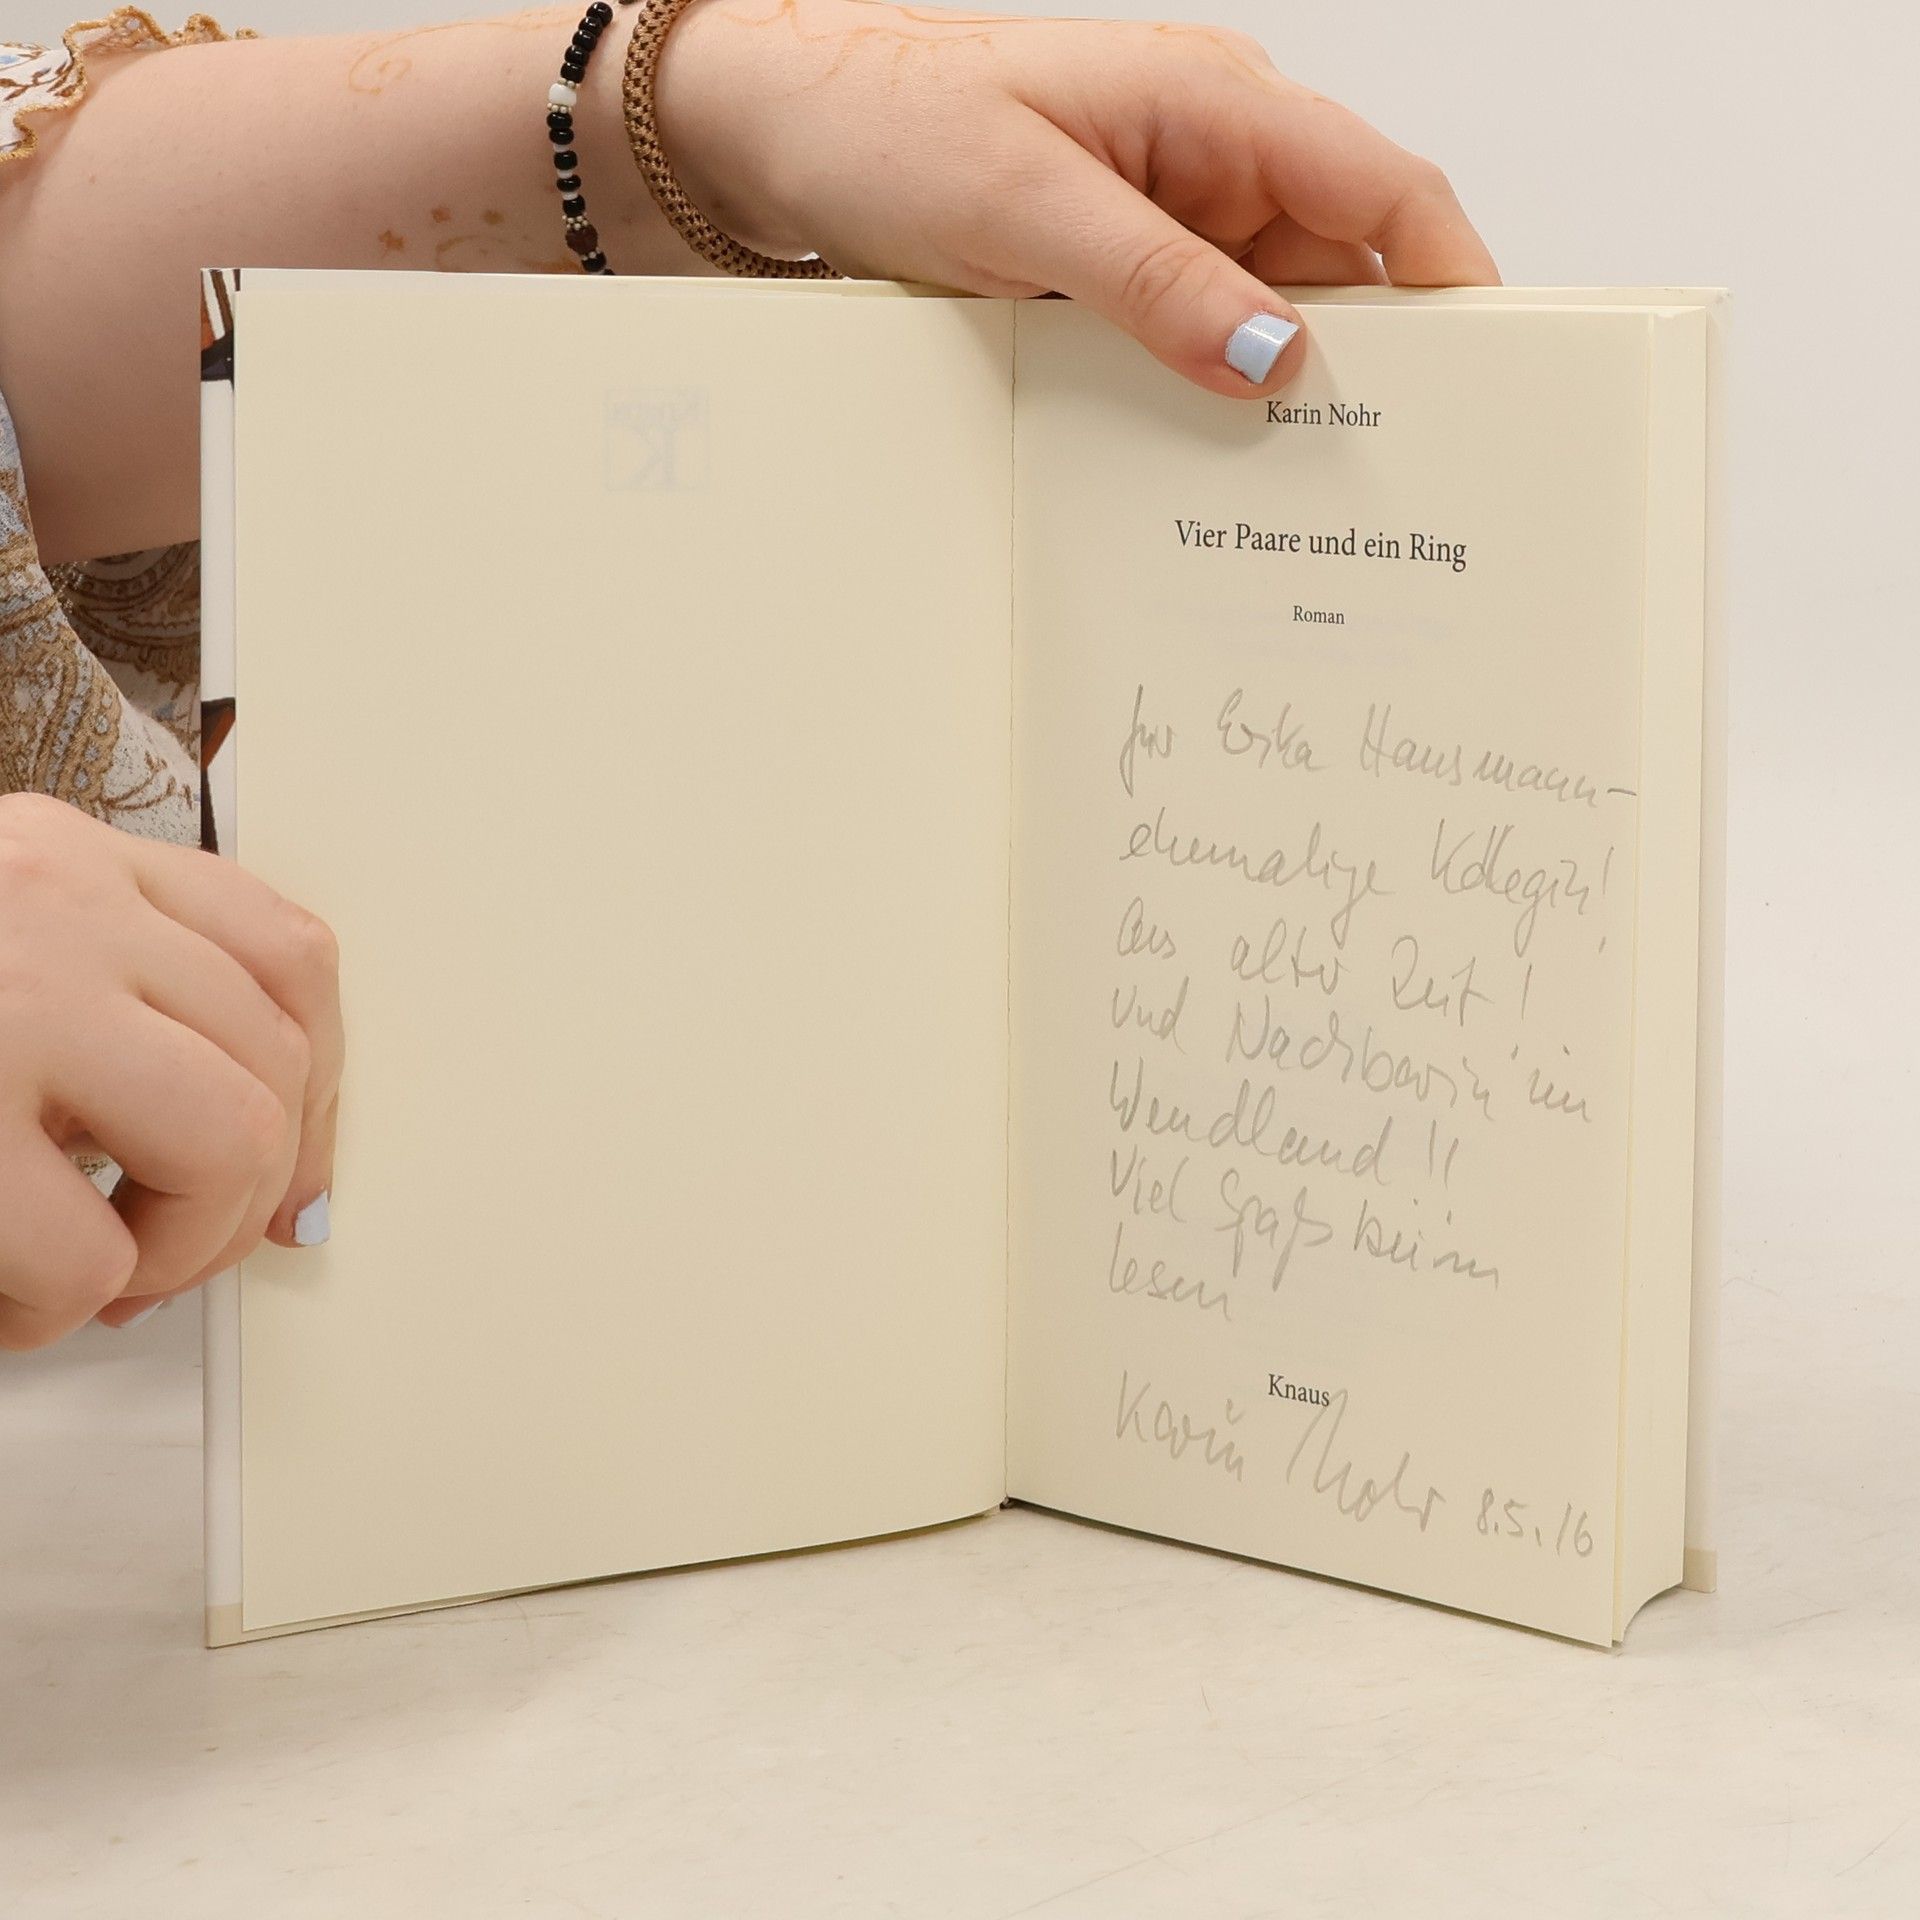 Karin Nohr
Vier Paare und ein Ring
Roman
für Erika Hausmann-
ehemalige Kollegin!
aus alter Zeit!
und Nachbarin im
Wendland!!
Viel Spaß beim
lesen
Knaus
Karin Nohr 8.5.16